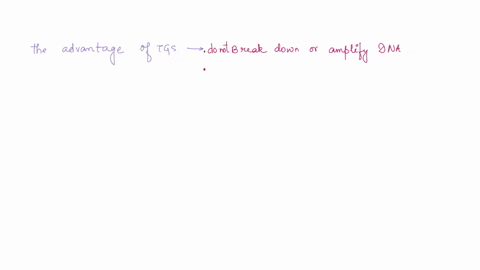 the advantage of TGS → • do not Break down or amplify DNA
•